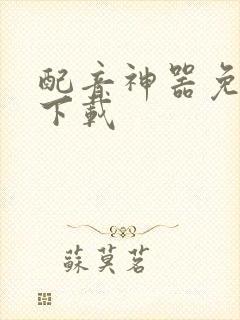 配音神器免
下载
蘇莫茗